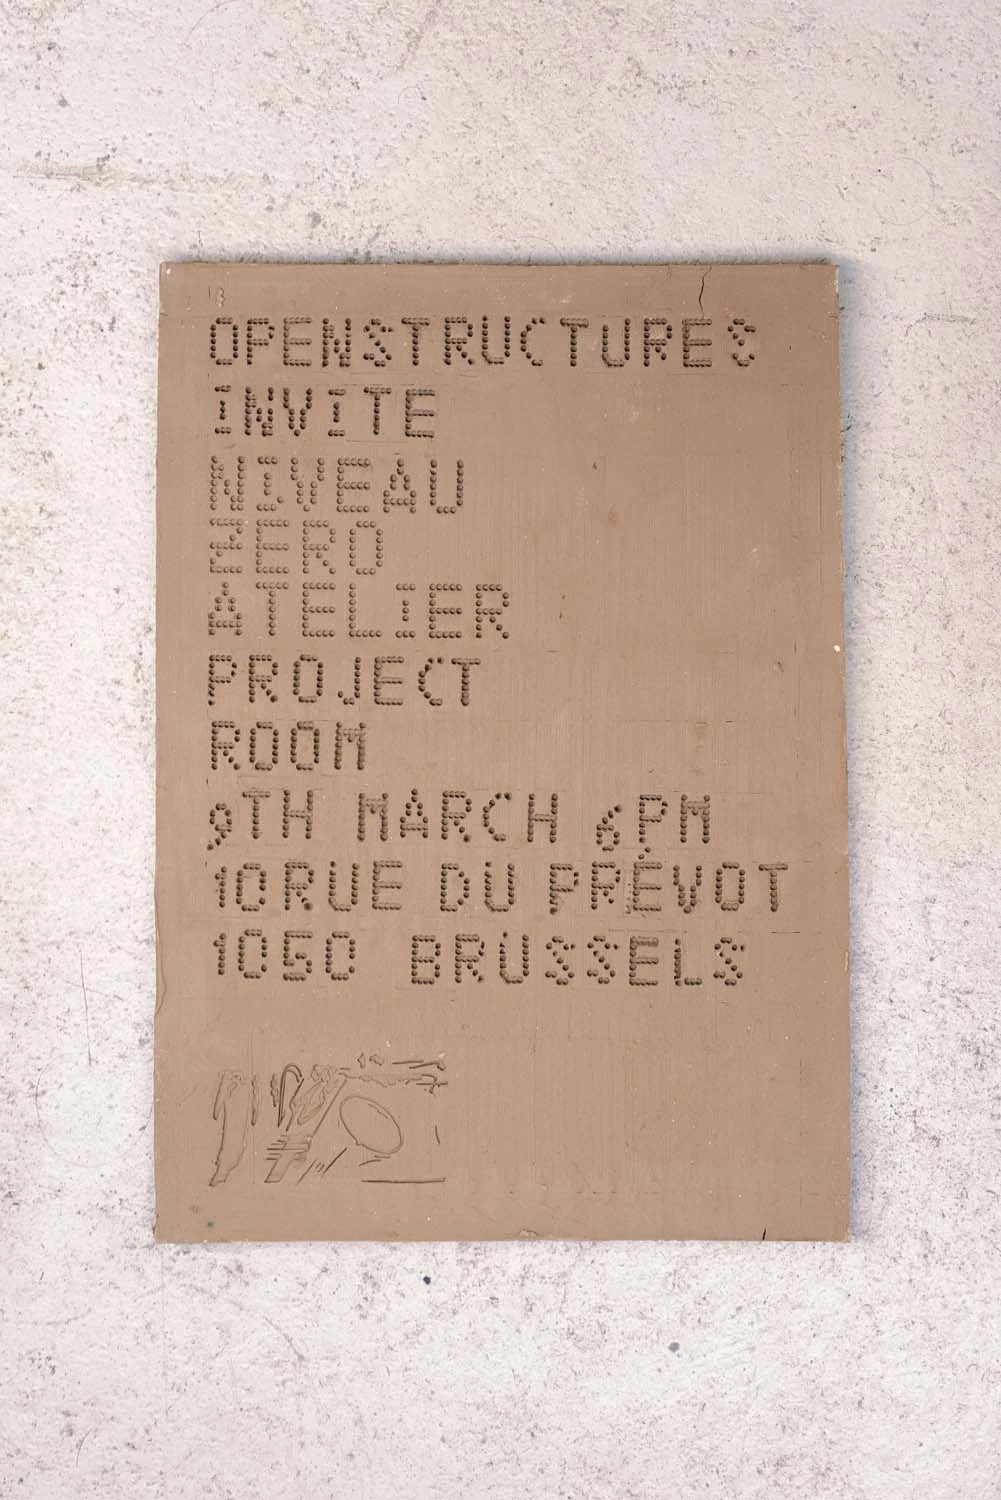 13
OPENSTRUCTURES
INVITE
NIVEAU
ZERO
ATELIER
PROJECT
ROOM
9TH MARCH 6PM
10 RUE DU PRÉVOT
1050 BRUSSELS